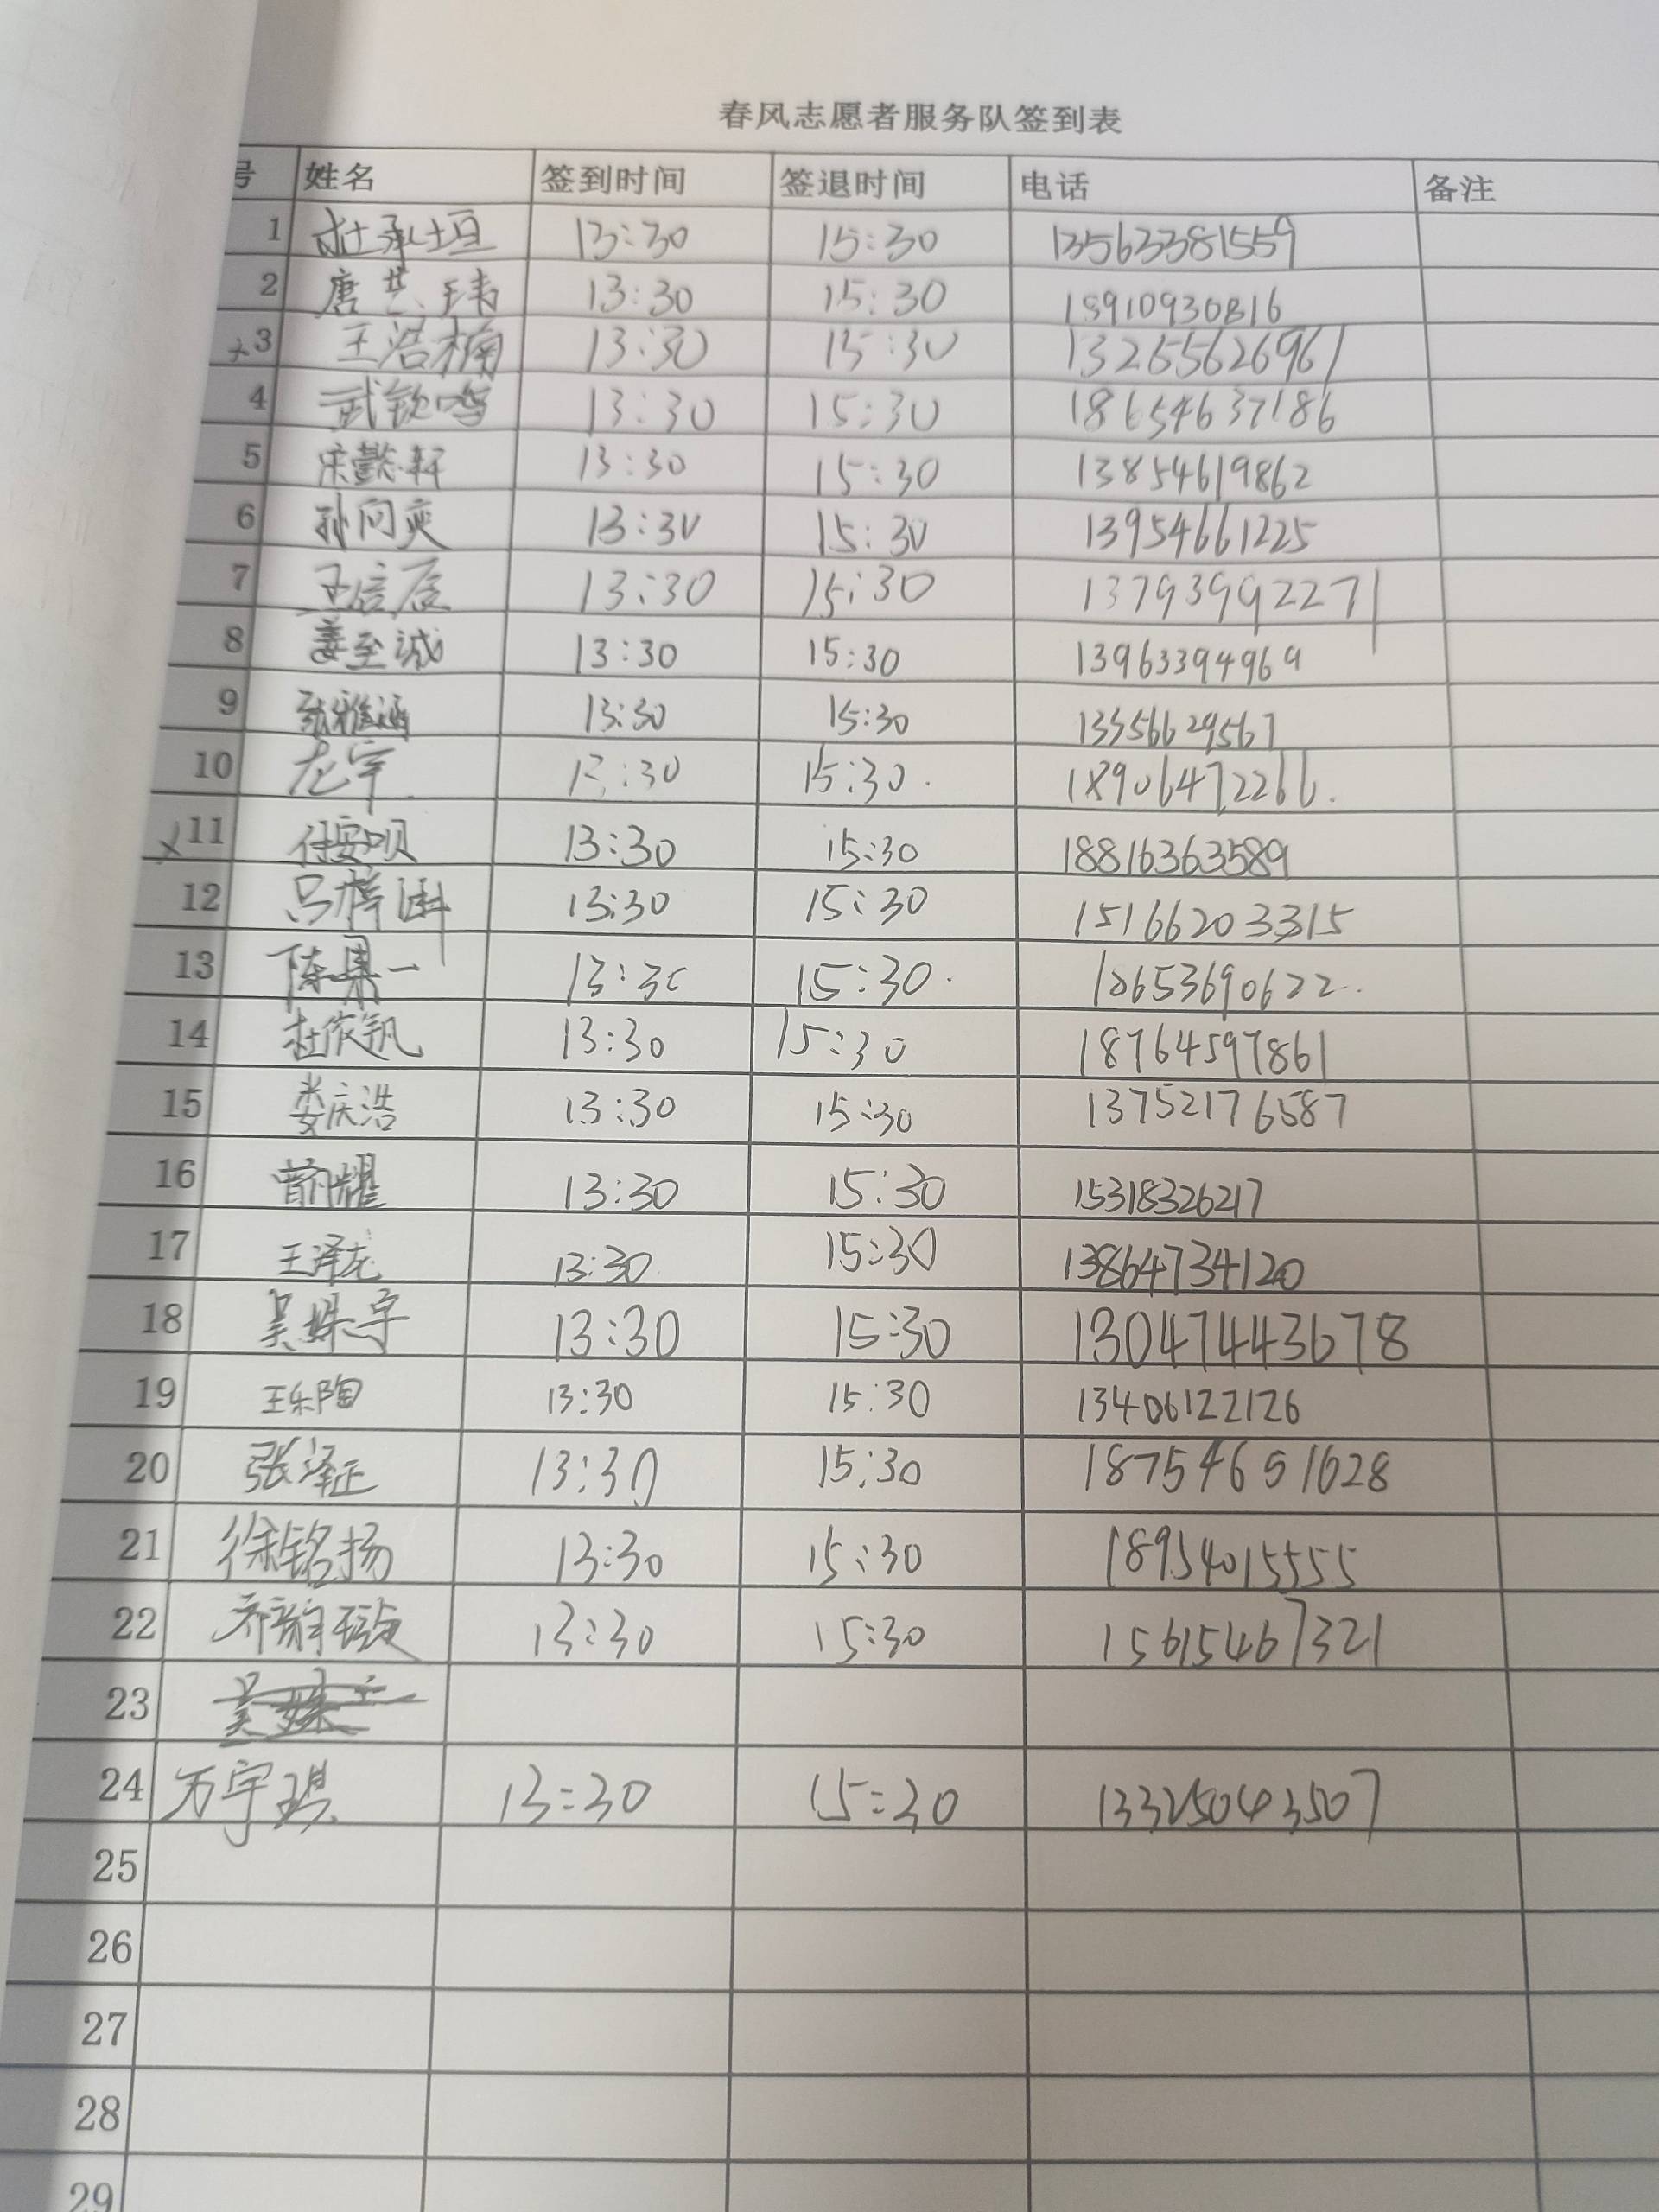 春风志愿者服务队签到表
号 姓名 签到时间 签退时间 电话 备注
1 杜承垣 13:30 15:30 13563381559
2 唐艺玮 13:30 15:30 18910930816
3 王浩楠 13:30 15:30 13265626961
4 武钦鸣 13:30 15:30 18654637186
5 宋懿轩 13:30 15:30 13854619862
6 孙问奕 13:30 15:30 13954661225
7 王信辰 13:30 15:30 13793992271
8 姜至诚 13:30 15:30 13963394969
9 张雅涵 13:30 15:30 13356629567
10 龙宇 13:30 15:30. 18906472266.
x11 13:30 15:30 18816363589
12 吕梓涵 13:30 15:30 15166203315
13 陈果一 13:30 15:30. 18653690622..
14 杜依钒 13:30 15:30 18764597861
15 娄庆浩 13:30 15:30 13752176587
16 13:30 15:30 15318326217
17 王泽龙 13:30 15:30 13864734120
18 吴姝宇 13:30 15:30 13047443678
19 王乐陶 13:30 15:30 13406122126
20 张泽正 13:30 15:30 18754651628
21 徐铭扬 13:30 15:30 18954015555
22 13:30 15:30 15615467321
23
24 万宇琪 13:30 15:30 13325043507
25
26
27
28
29